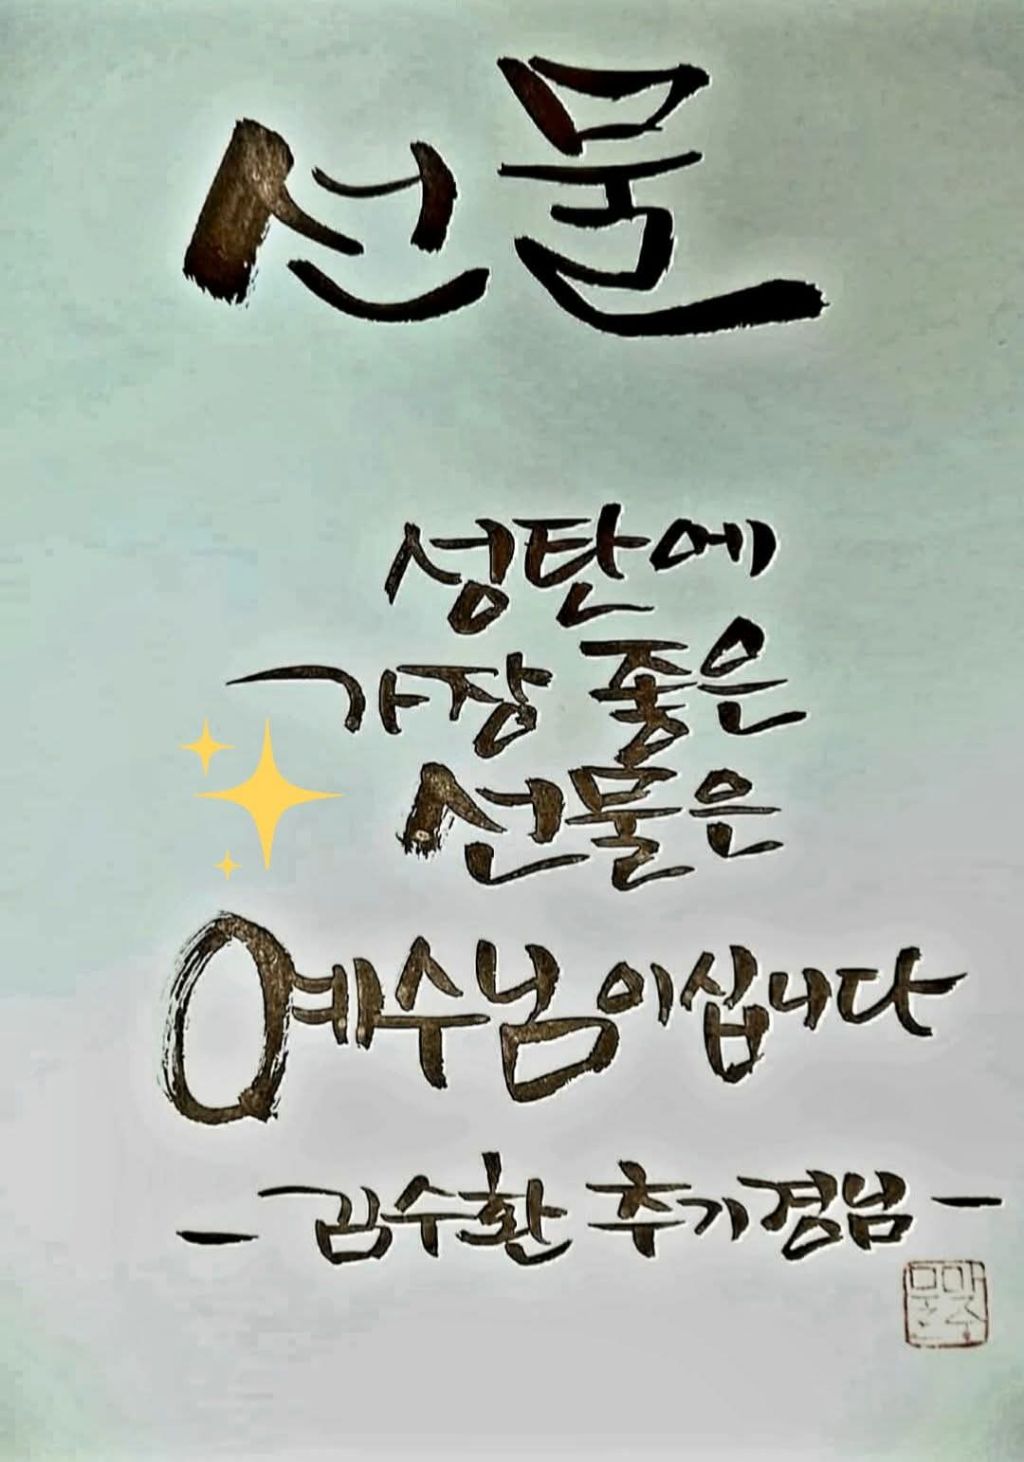 선물
성탄에
가장 좋은
선물은
예수님이십니다
- 김수환 추기경님 -